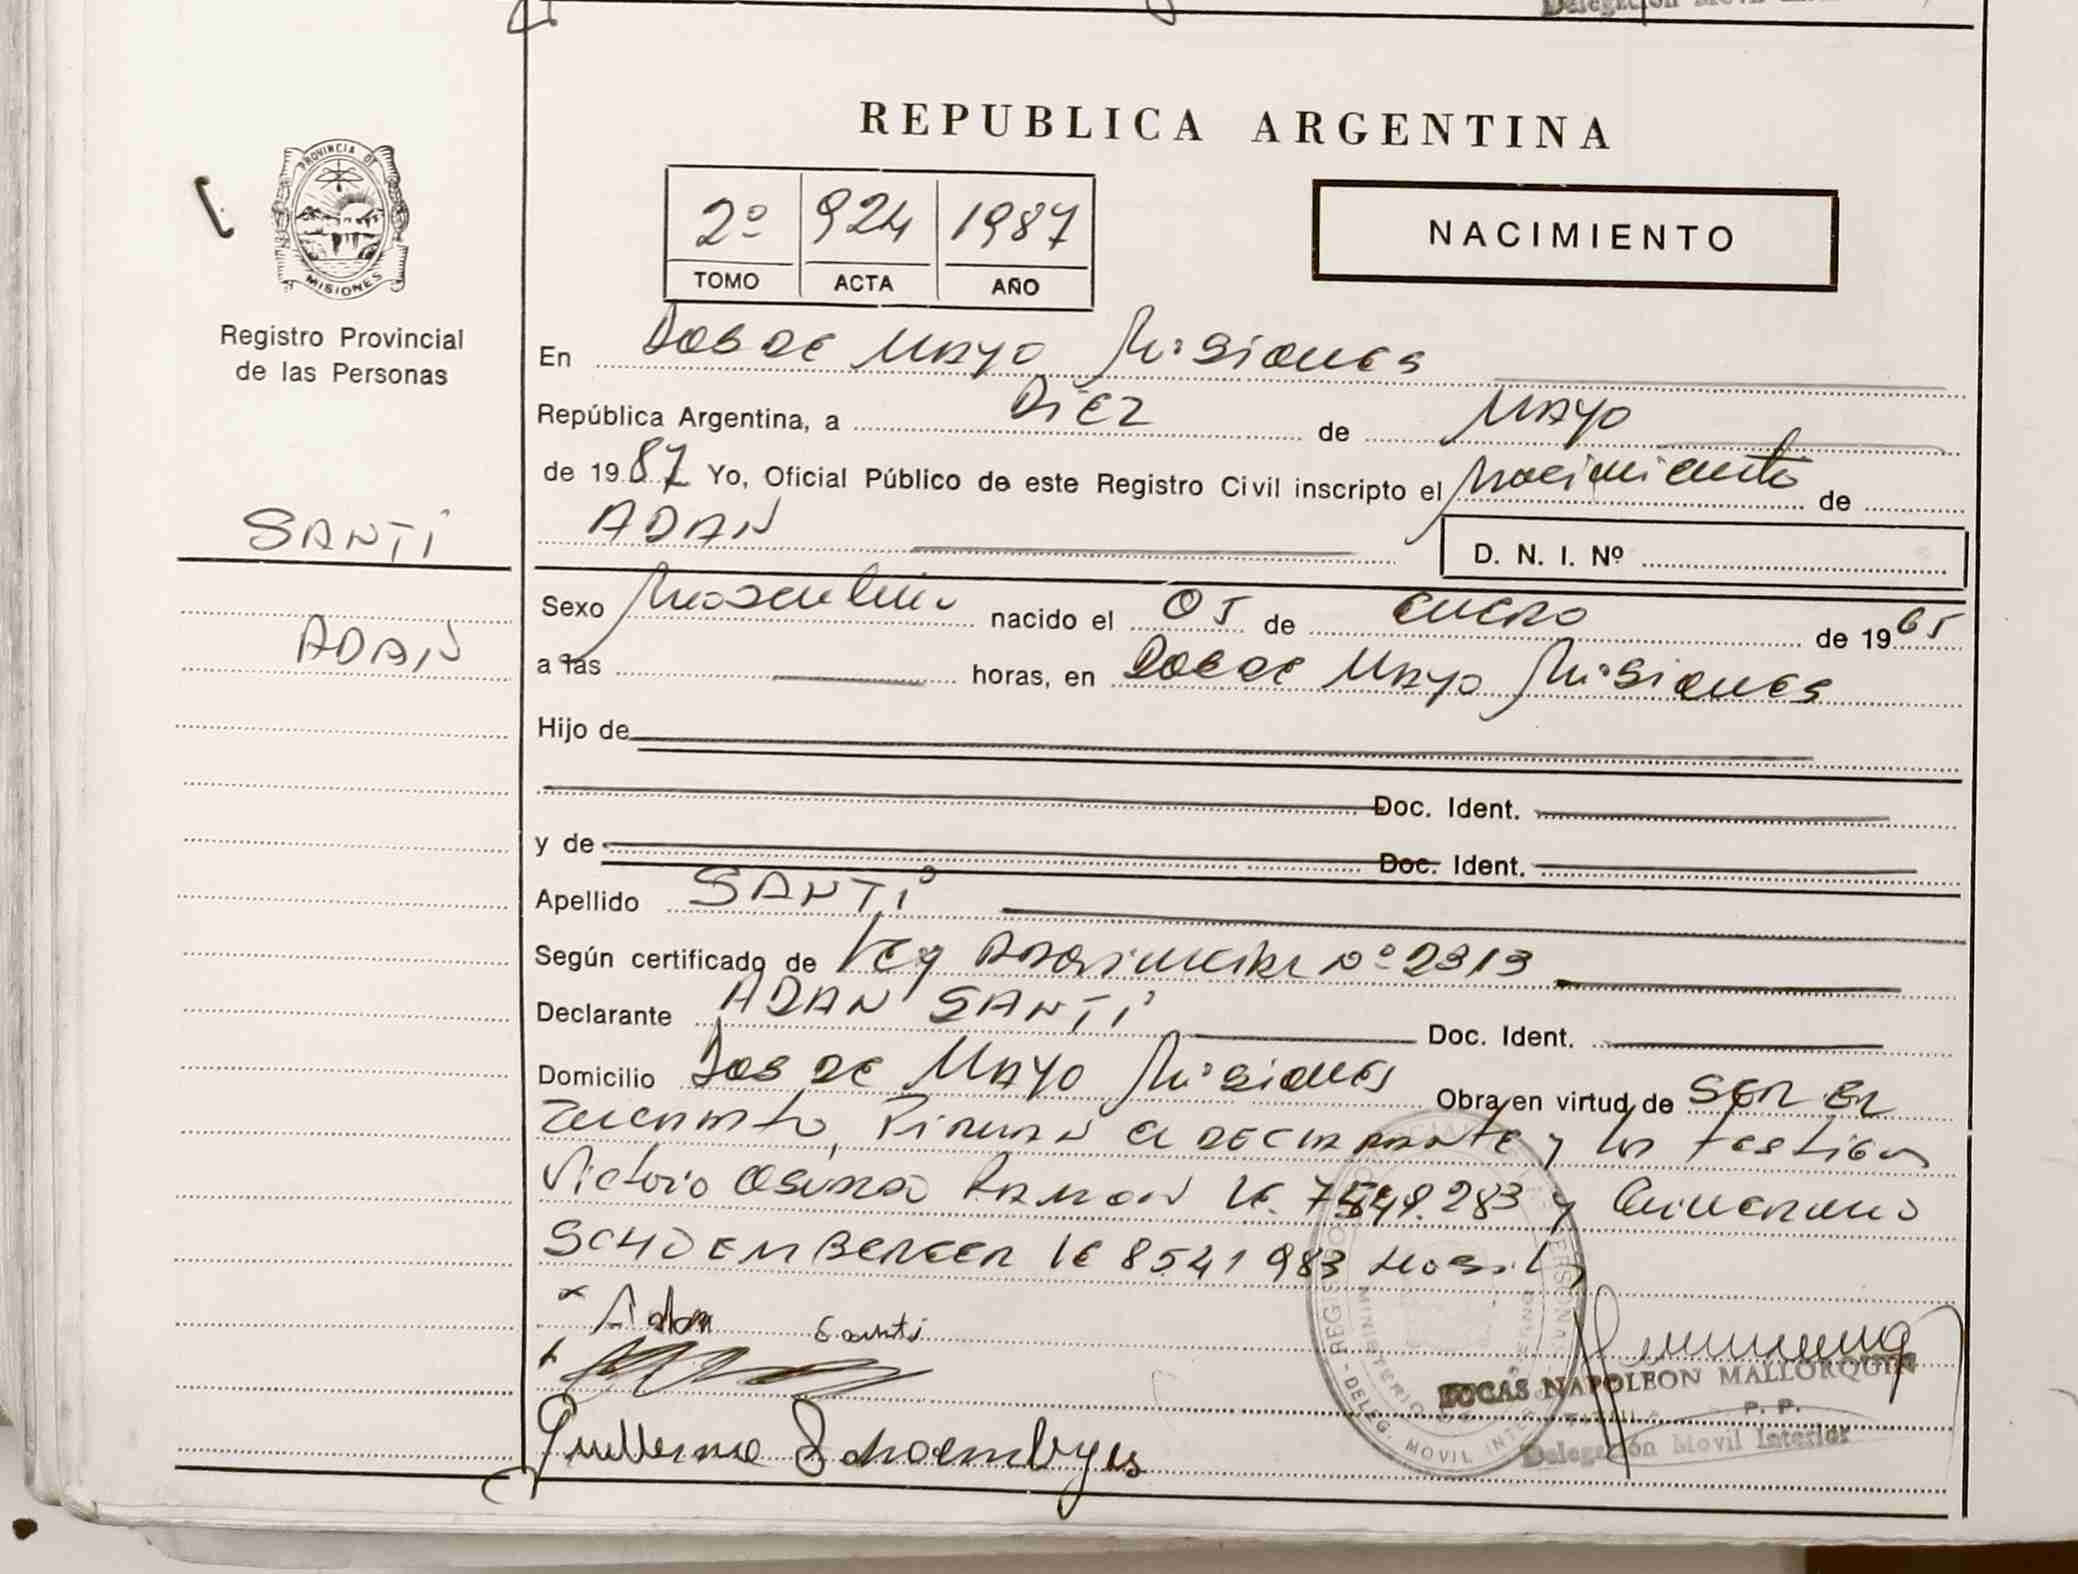 REPUBLICA ARGENTINA
PROVINCIA DE
MISIONES
Registro Provincial
de las Personas
2º 924 1987
TOMO ACTA AÑO
NACIMIENTO
En Dos de Mayo Misiones
República Argentina, a Diez de Mayo
de 1987 Yo, Oficial Público de este Registro Civil inscripto el Nacimiento de
SANTI
ADAN
D. N. I. Nº
ADAN
Sexo Masculino nacido el 05 de enero de 1965
a las horas, en Dos de Mayo Misiones
Hijo de
Doc. Ident.
y de Doc. Ident.
Apellido SANTI
Según certificado de Ley Provincial Nº 2313
Declarante ADAN SANTI Doc. Ident.
Domicilio Dos de Mayo Misiones Obra en virtud de SER EL
Firman el declarante y los testigos
Victorio Ramon LE. 7549.283 y Guillermo
SCHOEMBERGER LE 8541983
x Adan Santi
Guillermo
LUCAS NAPOLEON MALLORQUIN
P. P.
Delegación Movil Interior